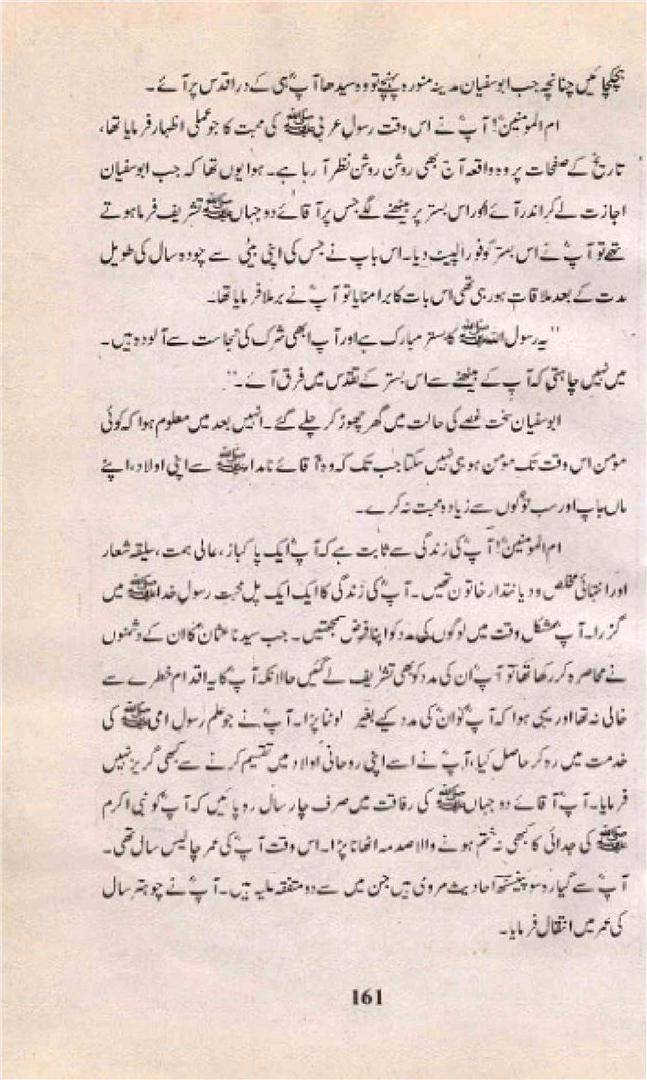 ہچکچائیں چنانچہ جب ابوسفیان مدینہ منورہ پہنچے تو وہ سیدھا آپؓ ہی کے در اقدس پر آئے۔
ام المومنینؓ! آپؓ نے اس وقت رسول عربی ﷺ کی محبت کا جو عملی اظہار فرمایا تھا،
تاریخ کے صفحات پر وہ واقعہ آج بھی روشن روشن نظر آ رہا ہے۔ ہوا یوں تھا کہ جب ابوسفیان
اجازت لے کر اندر آئے اور اس بستر پر بیٹھنے لگے جس پر آقائے دو جہاں ﷺ تشریف فرما ہوتے
تھے تو آپؓ نے اس بستر کو فوراً لپیٹ دیا۔ اس باپ نے جس کی اپنی بیٹی سے چودہ سال کی طویل
مدت کے بعد ملاقات ہو رہی تھی اس بات کا برا منایا تو آپؓ نے برملا فرمایا تھا:
"یہ رسول اللہ ﷺ کا بستر مبارک ہے اور آپ ابھی شرک کی نجاست سے آلودہ ہیں۔
میں نہیں چاہتی کہ آپ کے بیٹھنے سے اس بستر کے تقدس میں فرق آئے۔"
ابوسفیان سخت غصے کی حالت میں گھر چھوڑ کر چلے گئے۔ انہیں بعد میں معلوم ہوا کہ کوئی
مومن اس وقت تک مومن ہو ہی نہیں سکتا جب تک کہ وہ آقائے نامدار ﷺ سے اپنی اولاد، اپنے
ماں باپ اور سب لوگوں سے زیادہ محبت نہ کرے۔
ام المومنینؓ! آپؓ کی زندگی سے ثابت ہے کہ آپؓ ایک پاکباز، عالی ہمت، سلیقہ شعار
اور انتہائی مخلص و دیانتدار خاتون تھیں۔ آپؓ کی زندگی کا ایک ایک پل محبت رسول خدا ﷺ میں
گزرا۔ آپؓ مشکل وقت میں لوگوں کی مدد کو اپنا فرض سمجھتیں۔ جب سیدنا عثمانؓ کا ان کے دشمنوں
نے محاصرہ کر رکھا تھا تو آپؓ ان کی مدد کو بھی تشریف لے گئیں حالانکہ آپؓ کا یہ اقدام خطرے سے
خالی نہ تھا اور یہی ہوا کہ آپؓ کو ان کی مدد کیے بغیر لوٹنا پڑا۔ آپؓ نے جو علم رسول امی ﷺ کی
خدمت میں رہ کر حاصل کیا، آپؓ نے اسے اپنی روحانی اولاد میں تقسیم کرنے سے کبھی گریز نہیں
فرمایا۔ آپؓ آقائے دو جہاں ﷺ کی رفاقت میں صرف چار سال رہ پائیں کہ آپؓ کو نبی اکرم
ﷺ کی جدائی کا کبھی نہ ختم ہونے والا صدمہ اٹھانا پڑا۔ اس وقت آپؓ کی عمر چالیس سال تھی۔
آپؓ سے گیارہ سو پینسٹھ احادیث مروی ہیں جن میں سے دو متفقہ علیہ ہیں۔ آپؓ نے چوہتر سال
کی عمر میں انتقال فرمایا۔
161